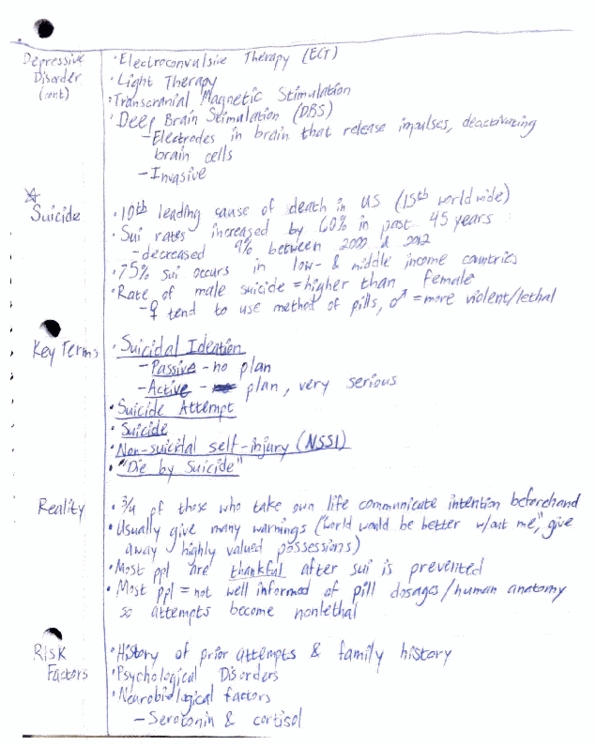 Depressive Disorder (cont)
• Electroconvulsive Therapy (ECT)
• Light Therapy
• Transcranial Magnetic Stimulation
• Deep Brain Stimulation (DBS)
– Electrodes in brain that release impulses, deactivating
brain cells
– Invasive
☆ Suicide
• 10th leading cause of death in US (15th worldwide)
• Sui rates increased by 60% in past 45 years
– decreased 9% between 2000 & 2012
• 75% sui occurs in low- & middle income countries
• Rate of male suicide = higher than female
– ♀ tend to use method of pills, ♂ = more violent/lethal
Key Terms
• Suicidal Ideation
– Passive - no plan
– Active - plan, very serious
• Suicide Attempt
• Suicide
• Non-suicidal self-injury (NSSI)
• "Die by Suicide"
Reality
• 3/4 of those who take own life communicate intention beforehand
• Usually give many warnings ("World would be better w/out me", give
away highly valued possessions)
• Most ppl are thankful after sui is prevented
• Most ppl = not well informed of pill dosages/human anatomy
so attempts become nonlethal
Risk Factors
• History of prior attempts & family history
• Psychological Disorders
• Neurobiological factors
– Serotonin & cortisol